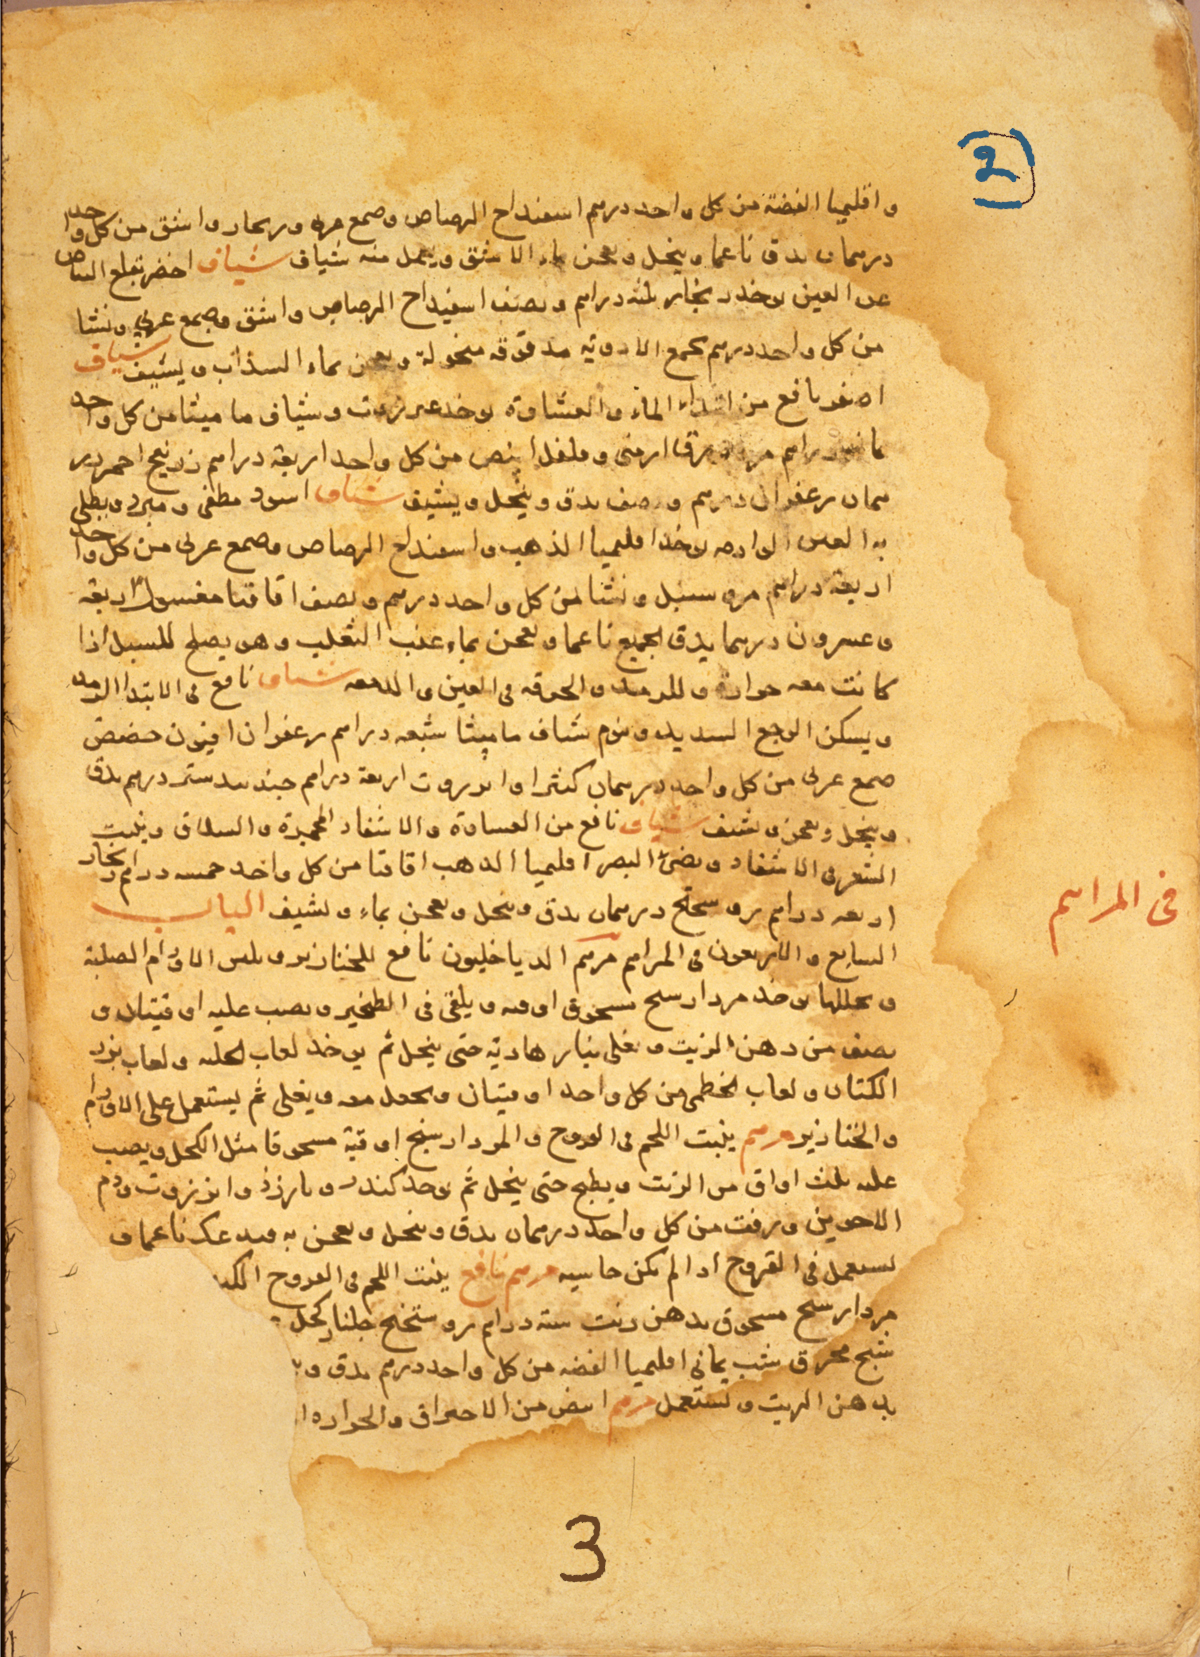 2
واقليميا الفضة من كل واحد درهم اسفنداح الرصاص وصمغ واشق من كل واحد
درهمان يدق ناعما وينخل ويعجن بماء الاشق ويعمل منه شياف شياف اخضر يقلع البياض
من العين يوخذ زنجار ثلثه دراهم ونصف اسفيداح الرصاص واشق وصمغ عربي ونشا
من كل واحد درهم يجمع الادويه مدقوقه منخولة ويعجن بماء السذاب ويشيف شياف
اصفر نافع من ابتداء الماء والغشاوة يوخذ عنزروت وشياف ماميثا من كل واحد
دراهم ارمنى وفلفل ابيض من كل واحد اربعة دراهم زرنيخ احمر در
همان زعفران درهم ونصف يدق وينخل ويشيف شياف اسود مطفى ومبرد ويطلى
به العين يوخذ اقليميا الذهب واسفنداح الرصاص وصمغ عربى من كل واحد
اربعة دراهم سنبل ونشا من كل واحد درهم ونصف اقاقيا مغسول اربعة
وعشرون درهما يدق الجميع ناعما ويعجن بماء عنب الثعلب وهو يصلح للسبل اذا
كانت معه حرارة وللرمد والحرقه فى العين والدمعه شياف نافع فى الابتدا الرمد
ويسكن الوجع الشديد وينوم شياف ماميثا سبعه دراهم زعفران افيون حضض
صمغ عربى من كل واحد درهمان كثيرا وانزروت اربعة دراهم جندبيدستر درهم يدق
وينخل ويعجن ويشيف شياف نافع من الغشاوة والاشفار المحمرة والسلاق وينبت
الشعر فى الاشفار ويضئ البصر اقليميا الذهب اقاقيا من كل واحد خمسه دراهم زنجار
اربعه دراهم درهمان يدق وينخل ويعجن بماء ويشيف الباب
السابع والاربعون فى المراهم مرهم الدياخليون نافع للخنازير ويلين الاورام الصلبة
ويحللها يوخذ مردارسنج مسحوق اوقيه ويلقى فى الطنجير ويصب عليه اوقيتان و
نصف من دهن الزيت ويغلى بنار هادية حتى ينحل ثم يوخذ لعاب الحلبه ولعاب بزر
الكتان ولعاب الخطمى من كل واحد اوقيتان ويجعل معه ويغلى ثم يستعمل على الاورام
والخنازير مرهم ينبت اللحم فى القروح والمردارسنج اوقية مسحوقا مثل الكحل ويصب
عليه ثلث اواق من الزيت ويطبخ حتى ينحل ثم يوخذ كندر وبارزذ وانزروت ودم
الاخوين وزفت من كل واحد درهمان يدق وينخل ويعجن به ويدعك ناعما و
يستعمل فى القروح اذا لم يكن حاميه مرهم نافع ينبت اللحم فى القروح
مردارسنج مسحوق بدهن زيت سته دراهم جلنار كحل
شبح محرق شب يمانى اقليميا الفضه من كل واحد درهم يدق
بدهن الزيت ويستعمل مرهم ابيض من الاحتراق والحراره
فى المراهم
3